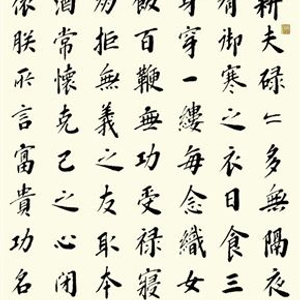 耕夫碌々多無隔夜
有御寒之衣日食三
身穿一縷每念織女
飯百鞭無功受禄寢
朋拒無義之友取本
酒常懷克己之心閉
依朕所言富貴功名